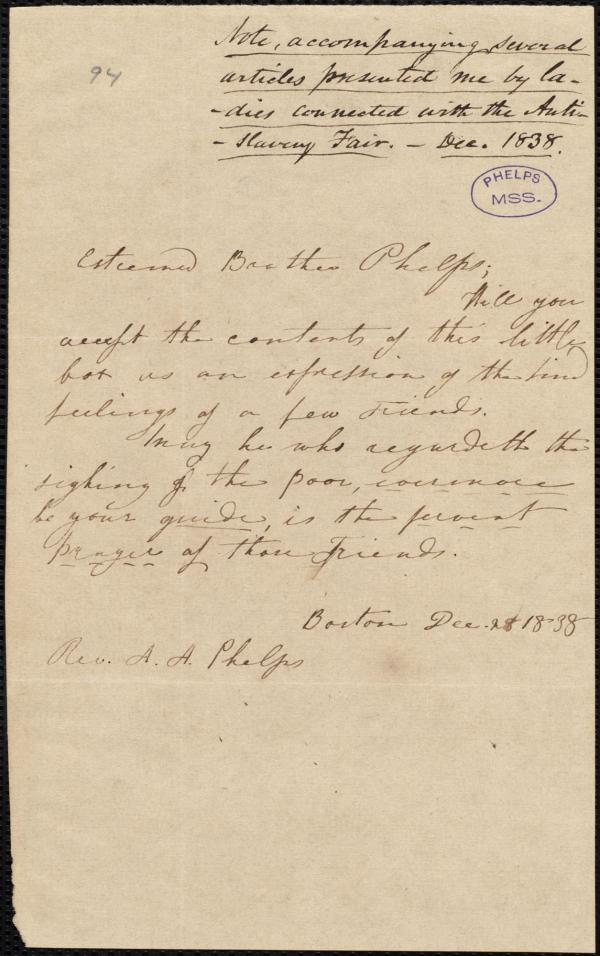 94
Note, accompanying several
articles presented me by la-
-dies connected with the Anti-
-Slavery Fair. - Dec. 1838.
PHELPS
MSS.
Esteemed Brother Phelps;
Will you
accept the contents of this little
box as an expression of the kind
feelings of a few Friends.
May he who regardeth the
sighing of the poor, evermore
be your guide, is the fervent
prayer of those Friends.
Boston Dec. 28 1838
Rev. A. A. Phelps